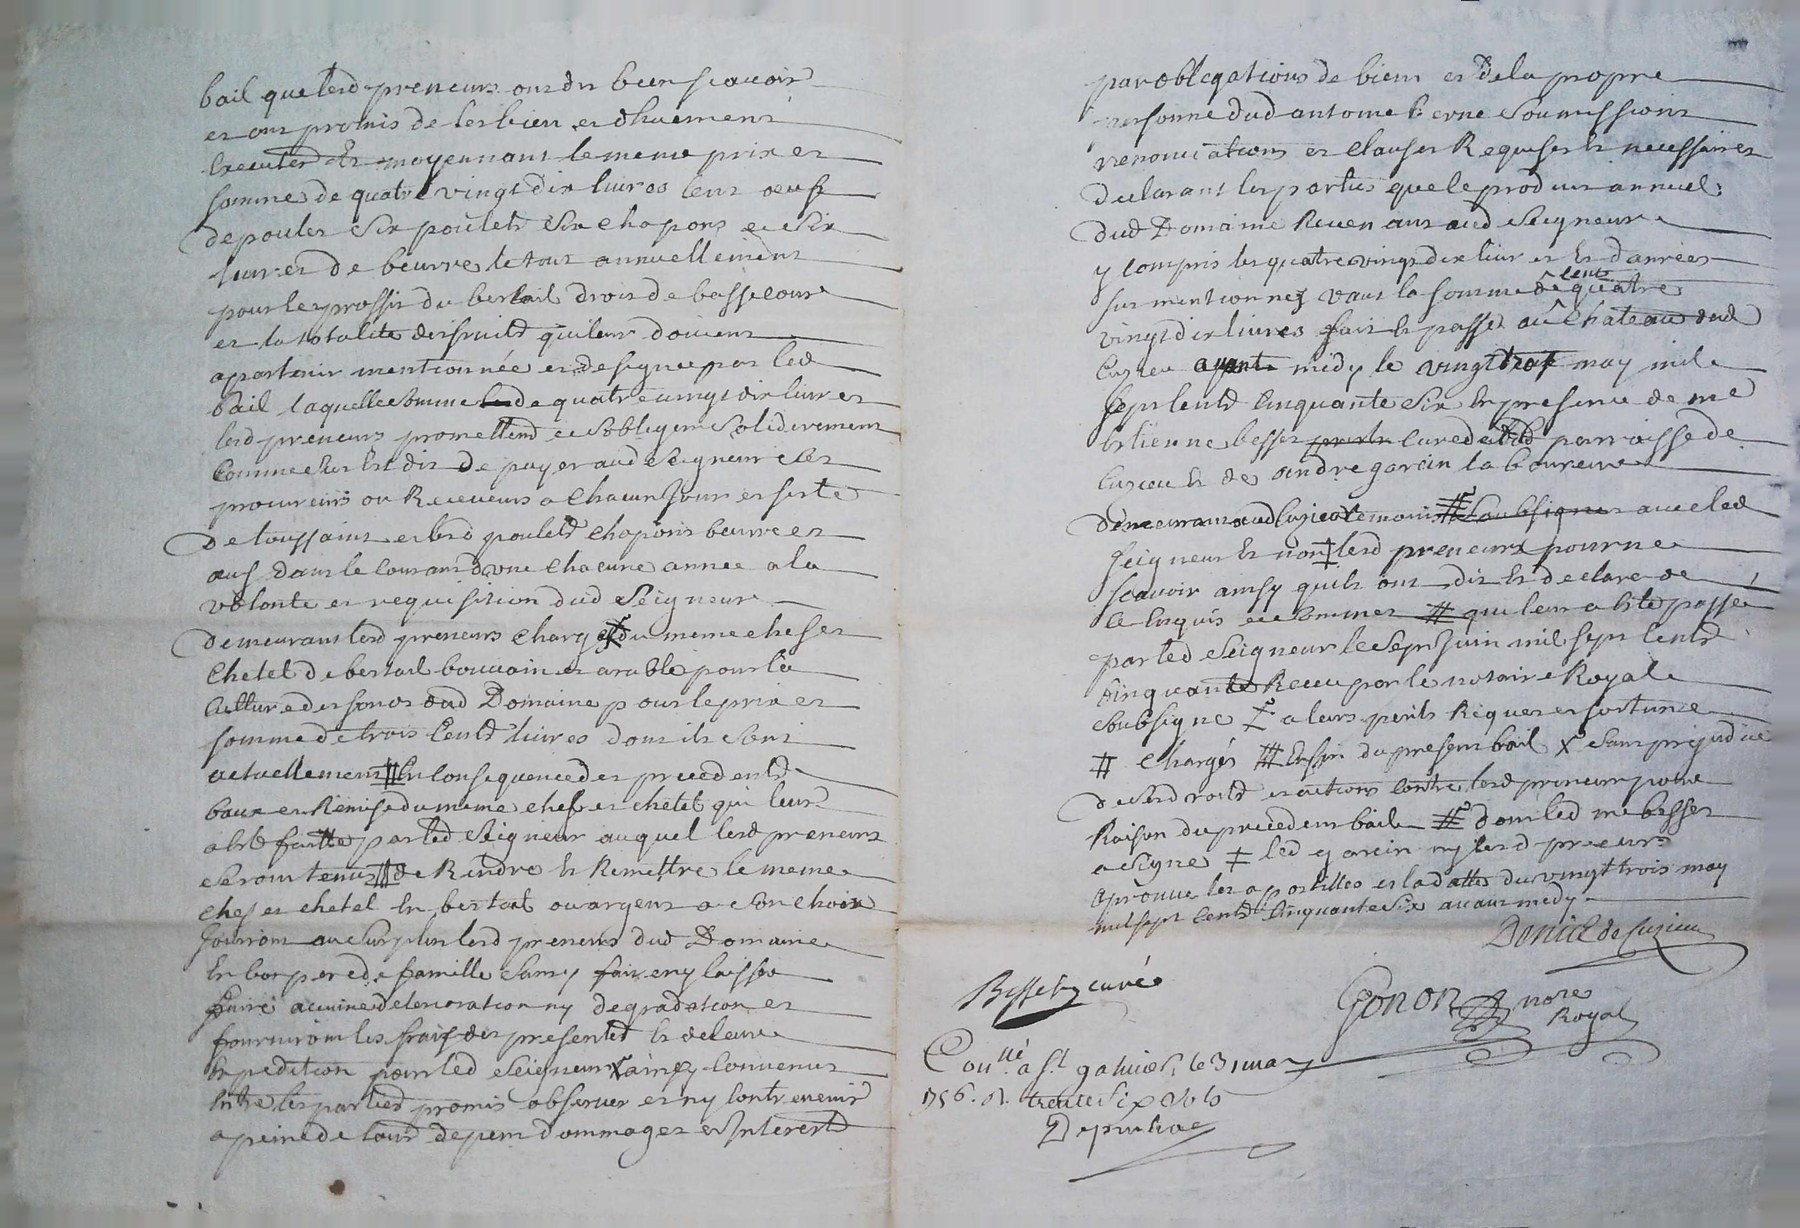 bail que lesd preneurs ont dit bien scavoir
et ont promis de les bien et dhuement
executer Et moyennant le meme prix et
somme de quatre vingt dix livres cent oeufs
de poules six poulets six chapons et six
livres de beurre le tout annuellement
pour les proffits du bestail droit de basse cour
et la totalite des fruits qui leur doivent
apartenir mentionnée et designée par led
bail laquelle somme de quatre vingt dix livres
lesd preneurs promettent et sobligent solidairement
comme il Est dit de payer aud Seigneur ses
procureurs ou Receveurs a chacun Jour et feste
de toussaint et lesd poulets chapons beurre et
oeufs dans le courant d'une chacune année a la
volonte et requisition dud Seigneur
demeurant lesd preneurs chargés du meme chef et
chetel de bestail bouvain et arable pour la
culture des fonds dud Domaine pour le prix et
somme de trois Cents livres dont ils sont
actuellement # En consequence des precedents
baux et Remise du meme chef et chetel qui leur
a été faitte par led Seigneur auquel lesd preneurs
seront tenus # de Rendre Et Remettre le meme
chef et chetel En bestail ou argent a son choix
Jouiront au surplus lesd preneurs dud Domaine
En bon pere de famille sans y faire ny laisser
faire aucune deterioration ny degradation et
fourniront les frais des presentes Et de leur
Expedition pour led Seigneur X ainsy convenus
Entre les parties promis observer et ny contrevenir
a peine de tous depens dommages et Interests
par obligations de biens et de la propre
personne dud antoine soumissions
renonciations et clauses Requises Et necessaires
declarant les parties que le produit annuel
dud Domaine Revenant aud Seigneur
y compris les quatre vingt dix livres et Les danrées
sur mentionnez vaut la somme de cent quatre
vingt dix livres fait Et passé au chateau dud
Cuzieu avant midy le vingt trois may mil
sept cents Cinquante six En presence de me
Estienne besset curé de lad parroisse de
Cuzieu Et de andre garcin laboureur
demeurant aud Cuzieu temoins # soubsignes avec led
Seigneur Et non ‡ lesd preneurs pour ne
scavoir ainsy quils ont dit Et declare de
ce Enquis et sommes # qui leur a Eté passé
par led Seigneur le sept Juin mil sept cents
Cinquante Receu par le notaire Royal
soubsigne X a leurs perils Riques et fortune
# chargés # En fin du present bail X sans prejudice
de ses droits et actions contre lesd preneurs pour
Raison du precedent bail # dont led me besset
a signe ‡ led garcin ny lesd preneurs
aprouvé les apostilles et la datte du vingt trois may
mil sept cents Cinquante six avant midy
Donies de Cuzieu
Besset curé
Gonon nore
Royal
Conllé a St galmier, le 31 may
1756. R. trente six sols